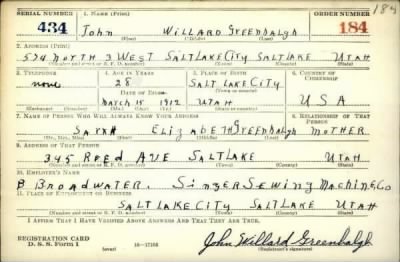 SERIAL NUMBER 1. NAME (Print) ORDER NUMBER 184
434 John WILLARD GREENhALgh 184
2. ADDRESS (Print)
574 NORTH 3 WEST SALT LAKE CITY SALT LAKE UTAH
3. TELEPHONE 4. AGE IN YEARS 5. PLACE OF BIRTH 6. COUNTRY OF CITIZENSHIP
none 28 SALT LAKE CITY
DATE OF BIRTH
MARCH 15 1912 UTAH U S A
7. NAME OF PERSON WHO WILL ALWAYS KNOW YOUR ADDRESS 8. RELATIONSHIP OF THAT PERSON
SARAH ELIZABETH GREENhALgh MOTHER
(Mr., Mrs., Miss) (First) (Middle) (Last)
9. ADDRESS OF THAT PERSON
345 REED AVE SALT LAKE UTAH
(Number and street or R. F. D. number) (Town) (County) (State)
10. EMPLOYER'S NAME
B BROADWATER. SINGER SEWING MACHINE Co
11. PLACE OF EMPLOYMENT OR BUSINESS
SALT LAKE CITY SALT LAKE UTAH
(Number and street or R. F. D. number) (Town) (County) (State)
I AFFIRM THAT I HAVE VERIFIED ABOVE ANSWERS AND THAT THEY ARE TRUE.
REGISTRATION CARD
D. S. S. Form 1 (over) 16—17105 John Willard Greenhalgh